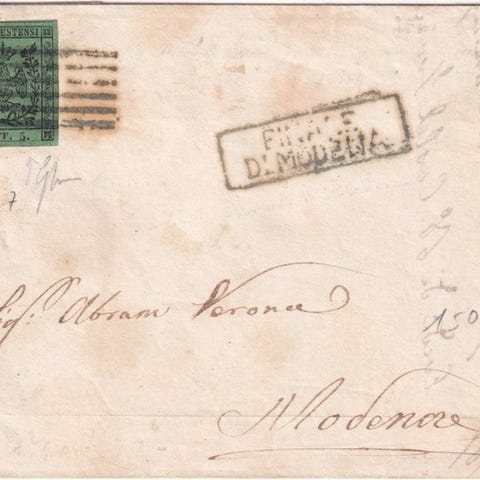 ESTENSI
T. 5.
FINALE
DI MODENA
7
Sigr. Abram Verona
150
Modena